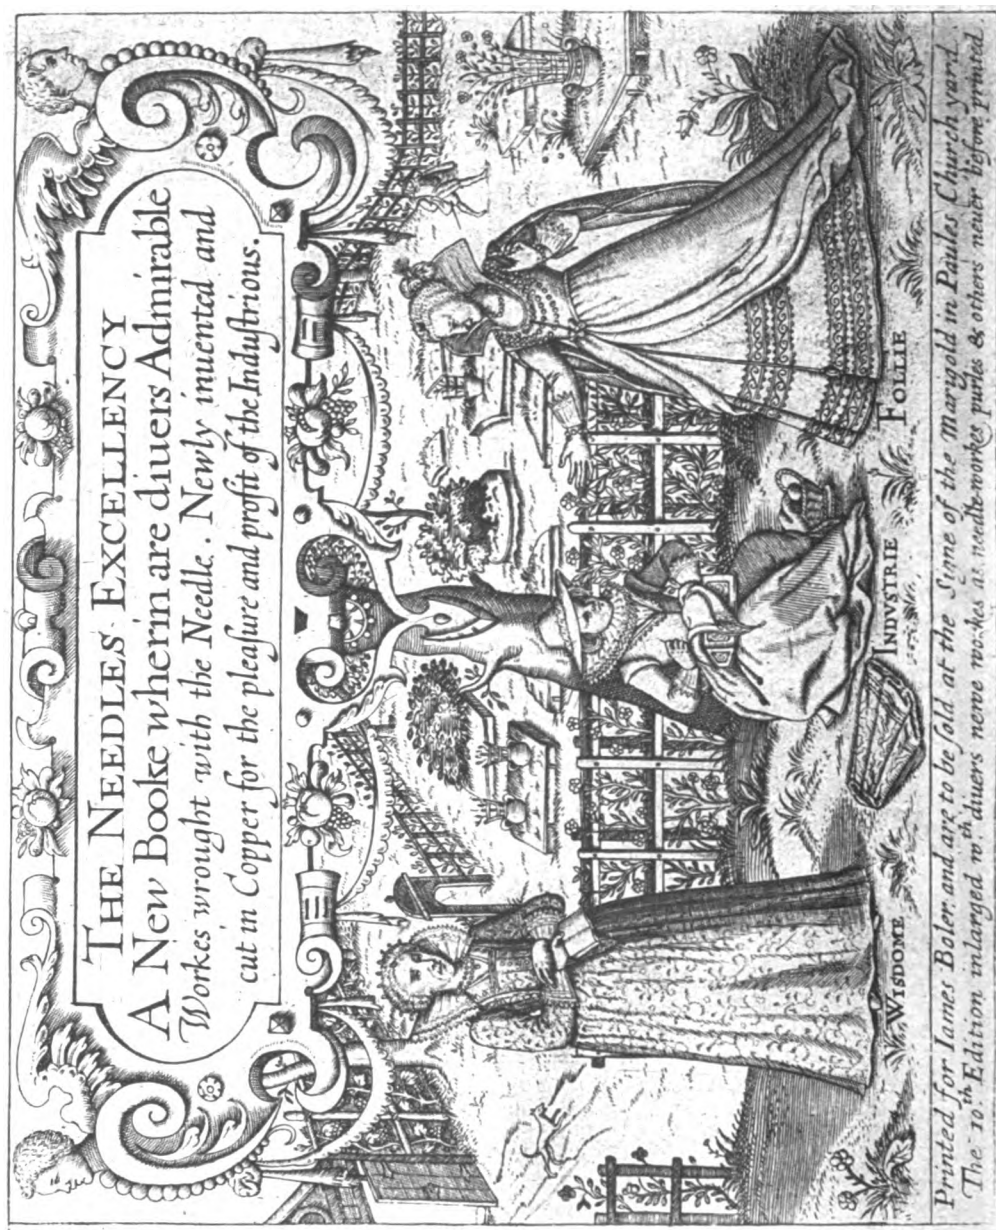 THE NEEDLES EXCELLENCY
A New Booke wherin are diuers Admirable
Workes wrought with the Needle. Newly inuented and
cut in Copper for the pleaſure and profit of the Induſtrious.
WISDOME
INDVSTRIE
FOLIE
Printed for Iames Boler and are to be ſold at the Signe of the Marigold in Paules Church yard.
The 10th Edition inlarged wth diuers newe workes as needleworkes purles & others neuer before printed